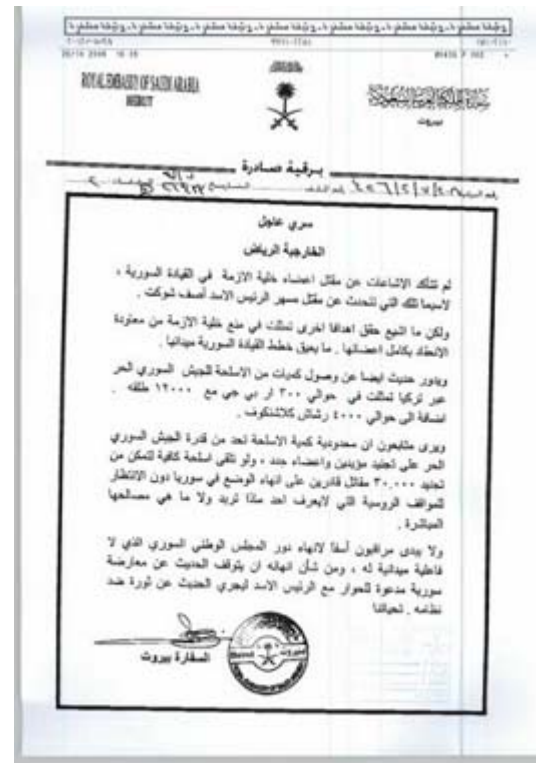 ROYAL EMBASSY OF SAUDI ARABIA
BEIRUT
بيروت
برقية صادرة
سري عاجل
الخارجية الرياض
لم تتأكد الاشاعات عن مقتل اعضاء خلية الازمة في القيادة السورية ،
لاسيما تلك التي تتحدث عن مقتل صهر الرئيس الاسد أصف شوكت .
ولكن ما اشيع حقق اهدافا اخرى تمثلت في منع خلية الازمة من معاودة
الانعقاد بكامل اعضائها . ما يعيق خطط القيادة السورية ميدانيا .
ويدور حديث ايضا عن وصول كميات من الاسلحة للجيش السوري الحر
عبر تركيا تمثلت في حوالي ٣٠٠ ار بي جي مع ١٢٠٠٠ طلقه .
اضافة الى حوالي ٤٠٠٠ رشاش كلاشنكوف .
ويرى متابعون ان محدودية كمية الاسلحة تحد من قدرة الجيش السوري
الحر على تجنيد مؤيدين واعضاء جدد ، ولو تلقى اسلحة كافية لتمكن من
تجنيد ٣٠.٠٠٠ مقاتل قادرين على انهاء الوضع في سوريا دون الانتظار
للمواقف الروسية التي لايعرف احد ماذا تريد ولا ما هي مصالحها
المباشرة .
ولا يبدى مراقبون أسفا لانهاء دور المجلس الوطني السوري الذي لا
فاعلية ميدانية له ، ومن شأن انهائه ان يتوقف الحديث عن معارضة
سورية مدعوة للحوار مع الرئيس الاسد ليجري الحديث عن ثورة ضد
نظامه . تحياتنا
السفارة بيروت